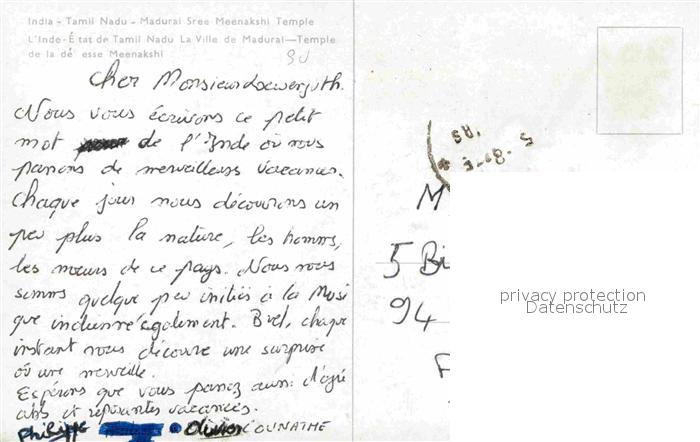 India - Tamil Nadu - Madurai Sree Meenakshi Temple
L'Inde-État de Tamil Nadu La Ville de Madurai—Temple
de la dé esse Meenakshi
Cher Monsieur
Nous vous écrivons ce petit
mot de l'Inde où nous
passons de merveilleuses vacances.
Chaque jour nous découvrons un
peu plus la nature, les hommes,
les mœurs de ce pays. Nous nous
sommes quelque peu initiés à la Musi
que indienne également. Bref, chaque
instant nous découvre une surprise
où une merveille.
Espérons que vous passez aussi d'agré
ables et reposantes vacances.
Philippe Olivier COUNATHE
M
5 Bi
94
F
privacy protection
Datenschutz